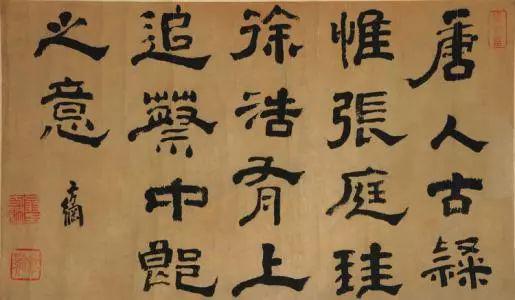 唐人古隸
惟張庭珪
徐浩有上
追蔡中郎
之意
方綱